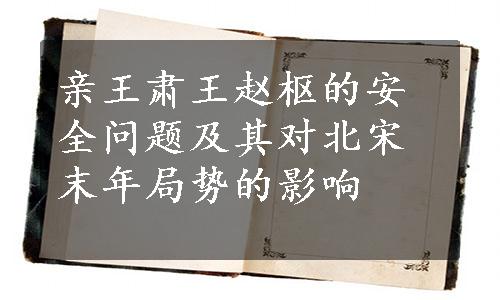 亲王肃王赵枢的安
全问题及其对北宋
末年局势的影响